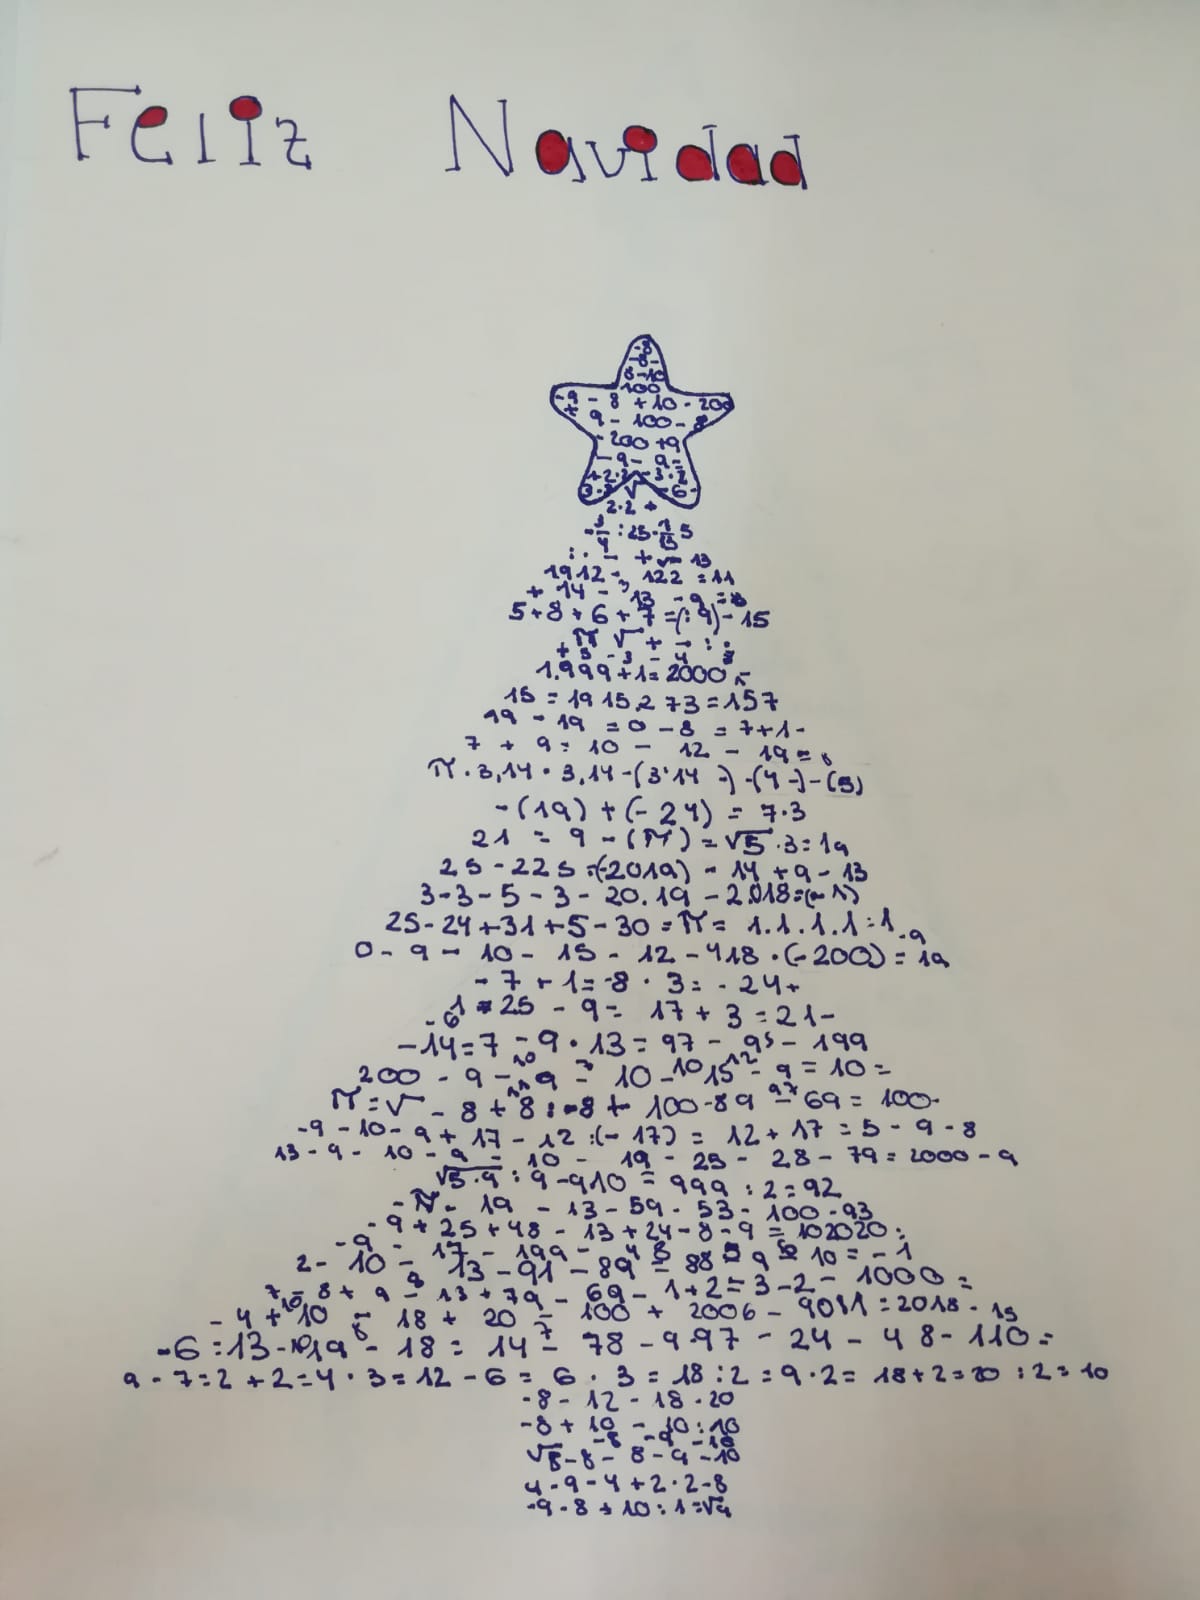 Feliz Navidad
-8
-8-
8-10
100
-9 - 8 + 10 - 200
+ 9 - 100 - 8
-200 +9
-9- 9=
2·2 +
1912 - 122 = 11
+ 14 - 13 - 9 =
5+8+6+7=(:9)-15
π √ + - : ·
+ 3 - 3 - 4
1.999+1=2000
15 = 19 15,2 73 = 157
19 - 19 = 0 - 8 = 7+1-
7 + 9 = 10 - 12 - 19 =
π·3,14·3,14-(3'14 -)-(4-)-(5)
-(19) + (-24) = 7·3
21 = 9 -(π) = √5·3=19
25-225:(-2019) - 14 +9-13
3-3-5-3-20.19-2.018=(-1)
25-24+31+5-30=π= 1.1.1.1:1
0-9-10-15-12-418·(-200)=19
-7+1=-8·3=-24+
1 25 - 9 = 17+3=21-
-14=7-9·13=97-95-199
200 - 9 - 9 - 10 - 15 - 9 = 10 =
π=√ - 8 + 8 : -8 + 100-89 - 69 = 100-
-9-10-9+17-12:(-17) = 12+17=5-9-8
13-9-10-9-10-19-25-28-79=2000-9
√5·9 : 9-910 = 999 : 2 = 92
-π- 19 - 13-59-53-100-93
-9+25+48-13+24-8-9=102020:
-9 - 17 - 199 -
2- 10 - 13 - 91 - 89 - 88 9 10 = -1
7-8+9-13+79-69-1+2=3-2-1000=
-4+10-18+20-100+2006-9011=2018-15
-6:13-19-18=14-78-9·97-24-48-110=
9-7=2+2=4·3=12-6=6·3=18:2=9·2=18+2=20:2=10
-8-12-18·20
-8+10-10:10
-8 -9 -10
√5-8-8-9-10
4-9-4+2·2-8
-9-8+10:1=√9